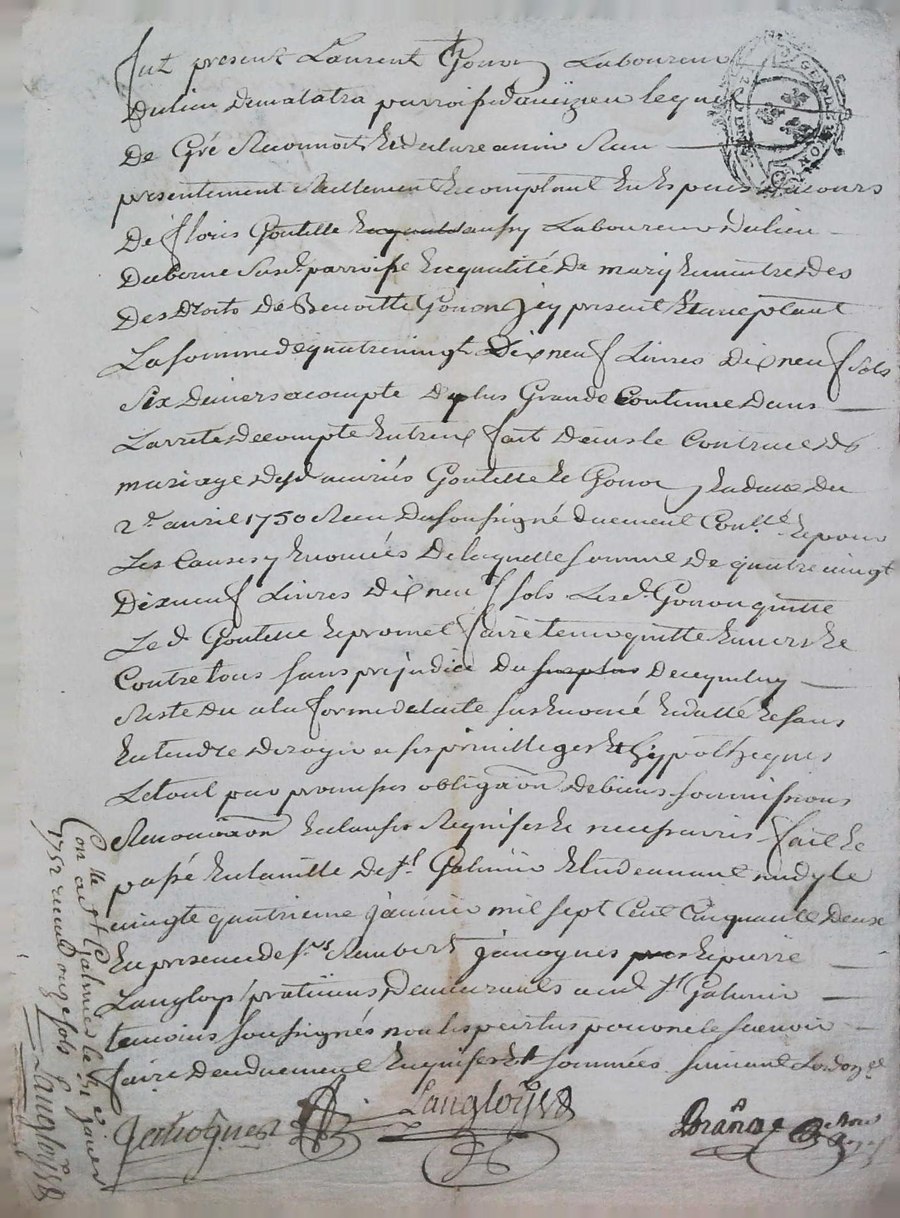 fut present Laurent Gonon Laboureur
du lieu de malatra parroisse d'aveizieu lequel
De Gré Reconnoit & declare avoir Reçu
presentement Reellement & comptant en Especes
De floris Goutelle aussy Laboureur du lieu
Duborne susd. parroisse En qualité De mary & maitre des
Des Droits De Benoitte Gonon Jcy present & acceptant
La somme de quatre vingt Dix neuf Livres Dix neuf sols
six Deniers acompte De plus Grande Contenue dans
L'arreté De compte Entreux fait dans le Contract de
mariage desd. mariés Goutelle & Gonon En datte du
2e. avril 1750 Receu Du soussigné duement Conllé. & pour
Les Causes y Enoncées De laquelle somme De quatre vingt
Dix neuf Livres Dix neuf sols Led. Gonon quitte
Led. Goutelle & promet faire tenir quitte Envers &
Contre tous sans prejudice Du
Reste Du a la forme de l'acte sus Enoncé & datté & sans
Entendre deroger a ses privilleges & hyppotheques
Le tout par promesses obligaon. de biens soumissions
Renonciaon. & clauses Requises & necessaires fait &
passé En la ville De st. Galmier Etude avant midy le
vingt quatrieme janvier mil sept Cent Cinquante deux
En presence de srs. Rambert janognes & pierre
Langlois praticiens Demeurants aud. st. Galmier
temoins soussignés non les parties pour ne le scavoir
faire De ce duement Enquises & sommées suivant L'ordonce.
Langlois
Conllé. a st Galmier le 31 janvier
1752 receu douze sols
Langlois